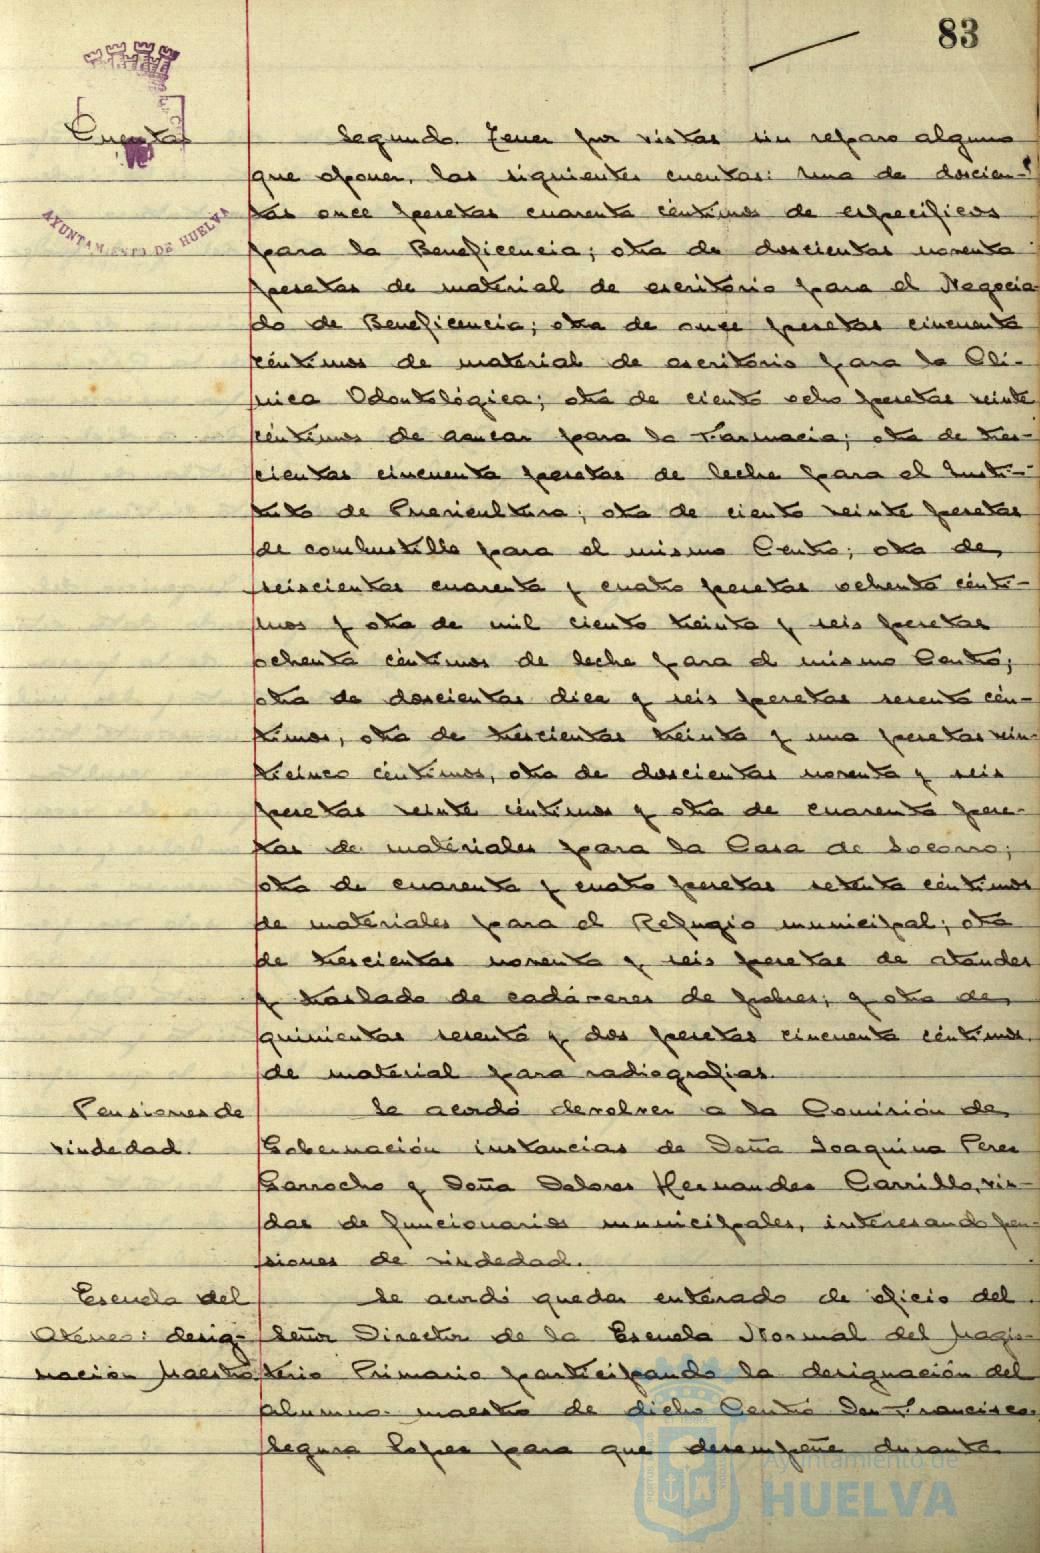 83
Cuentas
AYUNTAMIENTO DE HUELVA
Segundo. Tener por vistas sin reparo alguno
que oponer, las siguientes cuentas: Una de doscien-
tas once pesetas cuarenta céntimos de específicos
para la Beneficencia; otra de doscientas noventa
pesetas de material de escritorio para el Negocia
do de Beneficencia; otra de once pesetas cincuenta
céntimos de material de escritorio para la Clí-
nica Odontológica; otra de ciento ocho pesetas veinte
céntimos de azucar para la Farmacia; otra de tres-
cientas cincuenta pesetas de leche para el Insti-
tuto de Puericultura; otra de ciento veinte pesetas
de combustible para el mismo Centro; otra de
seiscientas cuarenta y cuatro pesetas ochenta cénti-
mos y otra de mil ciento treinta y seis pesetas
ochenta céntimos de leche para el mismo Centro;
otra de doscientas diez y seis pesetas sesenta cén-
timos, otra de trescientas treinta y una pesetas vein-
ticinco céntimos, otra de doscientas noventa y seis
pesetas veinte céntimos y otra de cuarenta pese-
tas de materiales para la Casa de Socorro;
otra de cuarenta y cuatro pesetas setenta céntimos
de materiales para el Refugio municipal; otra
de trescientas noventa y seis pesetas de ataudes
y traslado de cadáveres de pobres; y otra de
quinientas sesenta y dos pesetas cincuenta céntimos
de material para radiografias.
Pensiones de
viudedad.
Se acordó devolver a la Comisión de
Gobernación instancias de Doña Joaquina Perez
Garrocho y Doña Dolores Hernandez Carrillo, viu-
das de funcionarios municipales, interesando pen-
siones de viudedad.
Escuela del
Ateneo: desig-
nación Maestro
Se acordó quedar enterado de oficio del
Señor Director de la Escuela Normal del Magis-
terio Primario participando la designación del
alumno-maestro de dicho Centro Don Francisco
Segura Lopez para que desempeñe durante
Ayuntamiento de
HUELVA